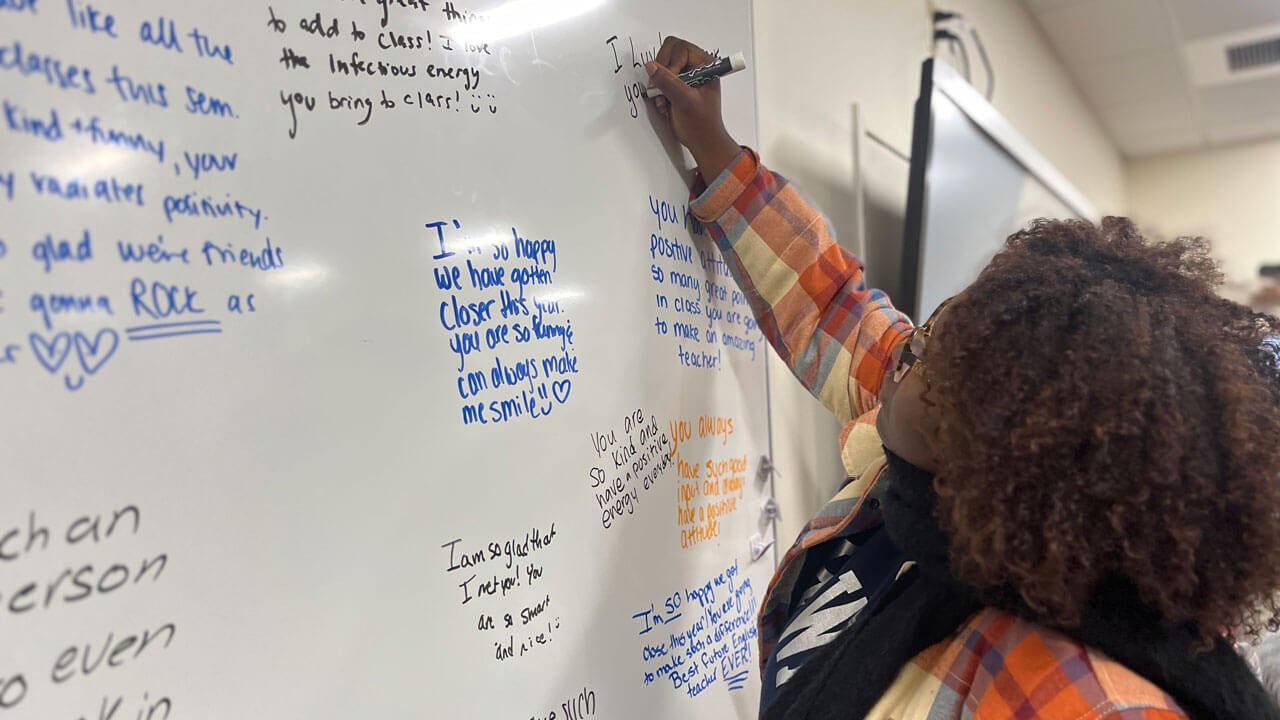 like all the
classes this sem.
kind + funny, your
radiates positivity.
glad we're friends
gonna ROCK as
great
to add to class! I love
the Infectious energy
you bring to class!
I
I'm so happy
we have gotten
closer this year.
you are so funny &
can always make
me smile!
you
positive
so many great
in class you are
to make an amazing
teacher!
You are
so kind and
have a positive
energy everyday!
you always
have such good
input and always
have a positive
attitude!
I am so glad that
I met you! You
are so smart
and nice!
I'm SO happy we got
close this year! You are going
to make such a difference!!!
Best Future English
teacher EVER!
an
even
in